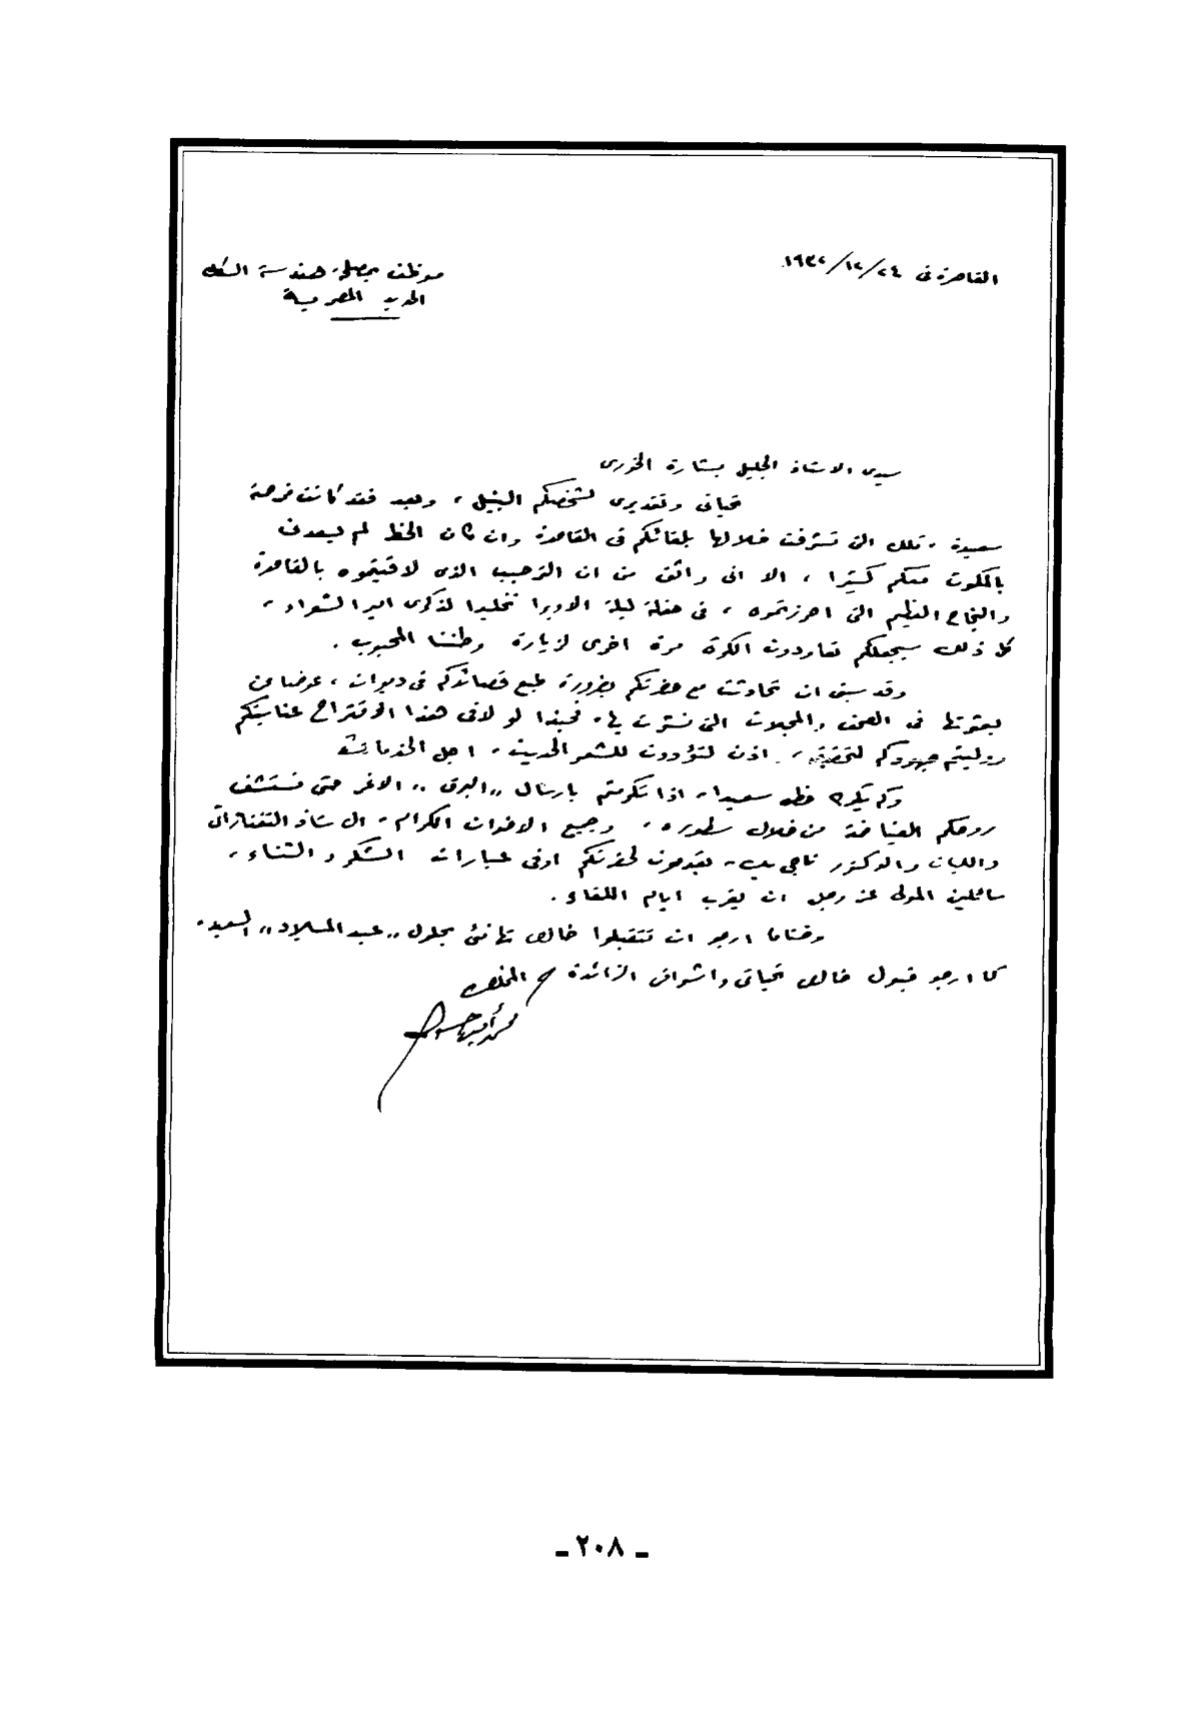 القاهرة فى ٢٤/١٢/١٩٣٢
موظف بمصلحة هندسة السكك
الحديد المصرية
سيدى الاستاذ الجليل بشارة الخورى
تحياتى وتقديرى لشخصكم النبيل، وبعد فقد كانت فرصة
سعيدة، تلك التى تشرفت خلالها بلقائكم فى القاهرة وان كان الحظ لم يسعدنى
بالمكوث معكم كثيرا، الا انى واثق من ان الترحيب الذى لاقيتموه بالقاهرة
والنجاح العظيم التى احرزتموه، فى حفلة ليلة الاوبرا تخليدا لذكرى امير الشعراء،
كل ذلك سيجعلكم تعاودون الكرة مرة اخرى لزيارة وطننا المحبوب.
وقد سبق ان تحادثت مع حضرتكم بضرورة طبع قصائدكم فى ديوان، عوضا عن
بعثرتها فى الصحف والمجلات التى نشرت بها، فحبذا لو لاقى هذا الاقتراح عنايتكم
ووليتم جهودكم لتحقيقه، اذن لتؤدون للشعر الحديث، اجل الخدمات
وكم يكون حظى سعيدا، اذا تكرمتم بارسال "البرق" الاغر حتى نستشف
روحكم الفياضة من خلال سطوره، وجميع الاخوان الكرام، الاستاذ التفتازانى
واللبان والدكتور ناجى يقدمون لحضرتكم اوفى عبارات الشكر والثناء،
سائلين المولى عز وجل ان يقرب ايام اللقاء.
وختاما ارجو ان تتقبلوا خالص تهانئى بحلول "عيد الميلاد" السعيد،
كما ارجو قبول خالص تحياتى واشواقى الزائدة المخلص
محمد أمين حسونة
ـ ٢٠٨ ـ